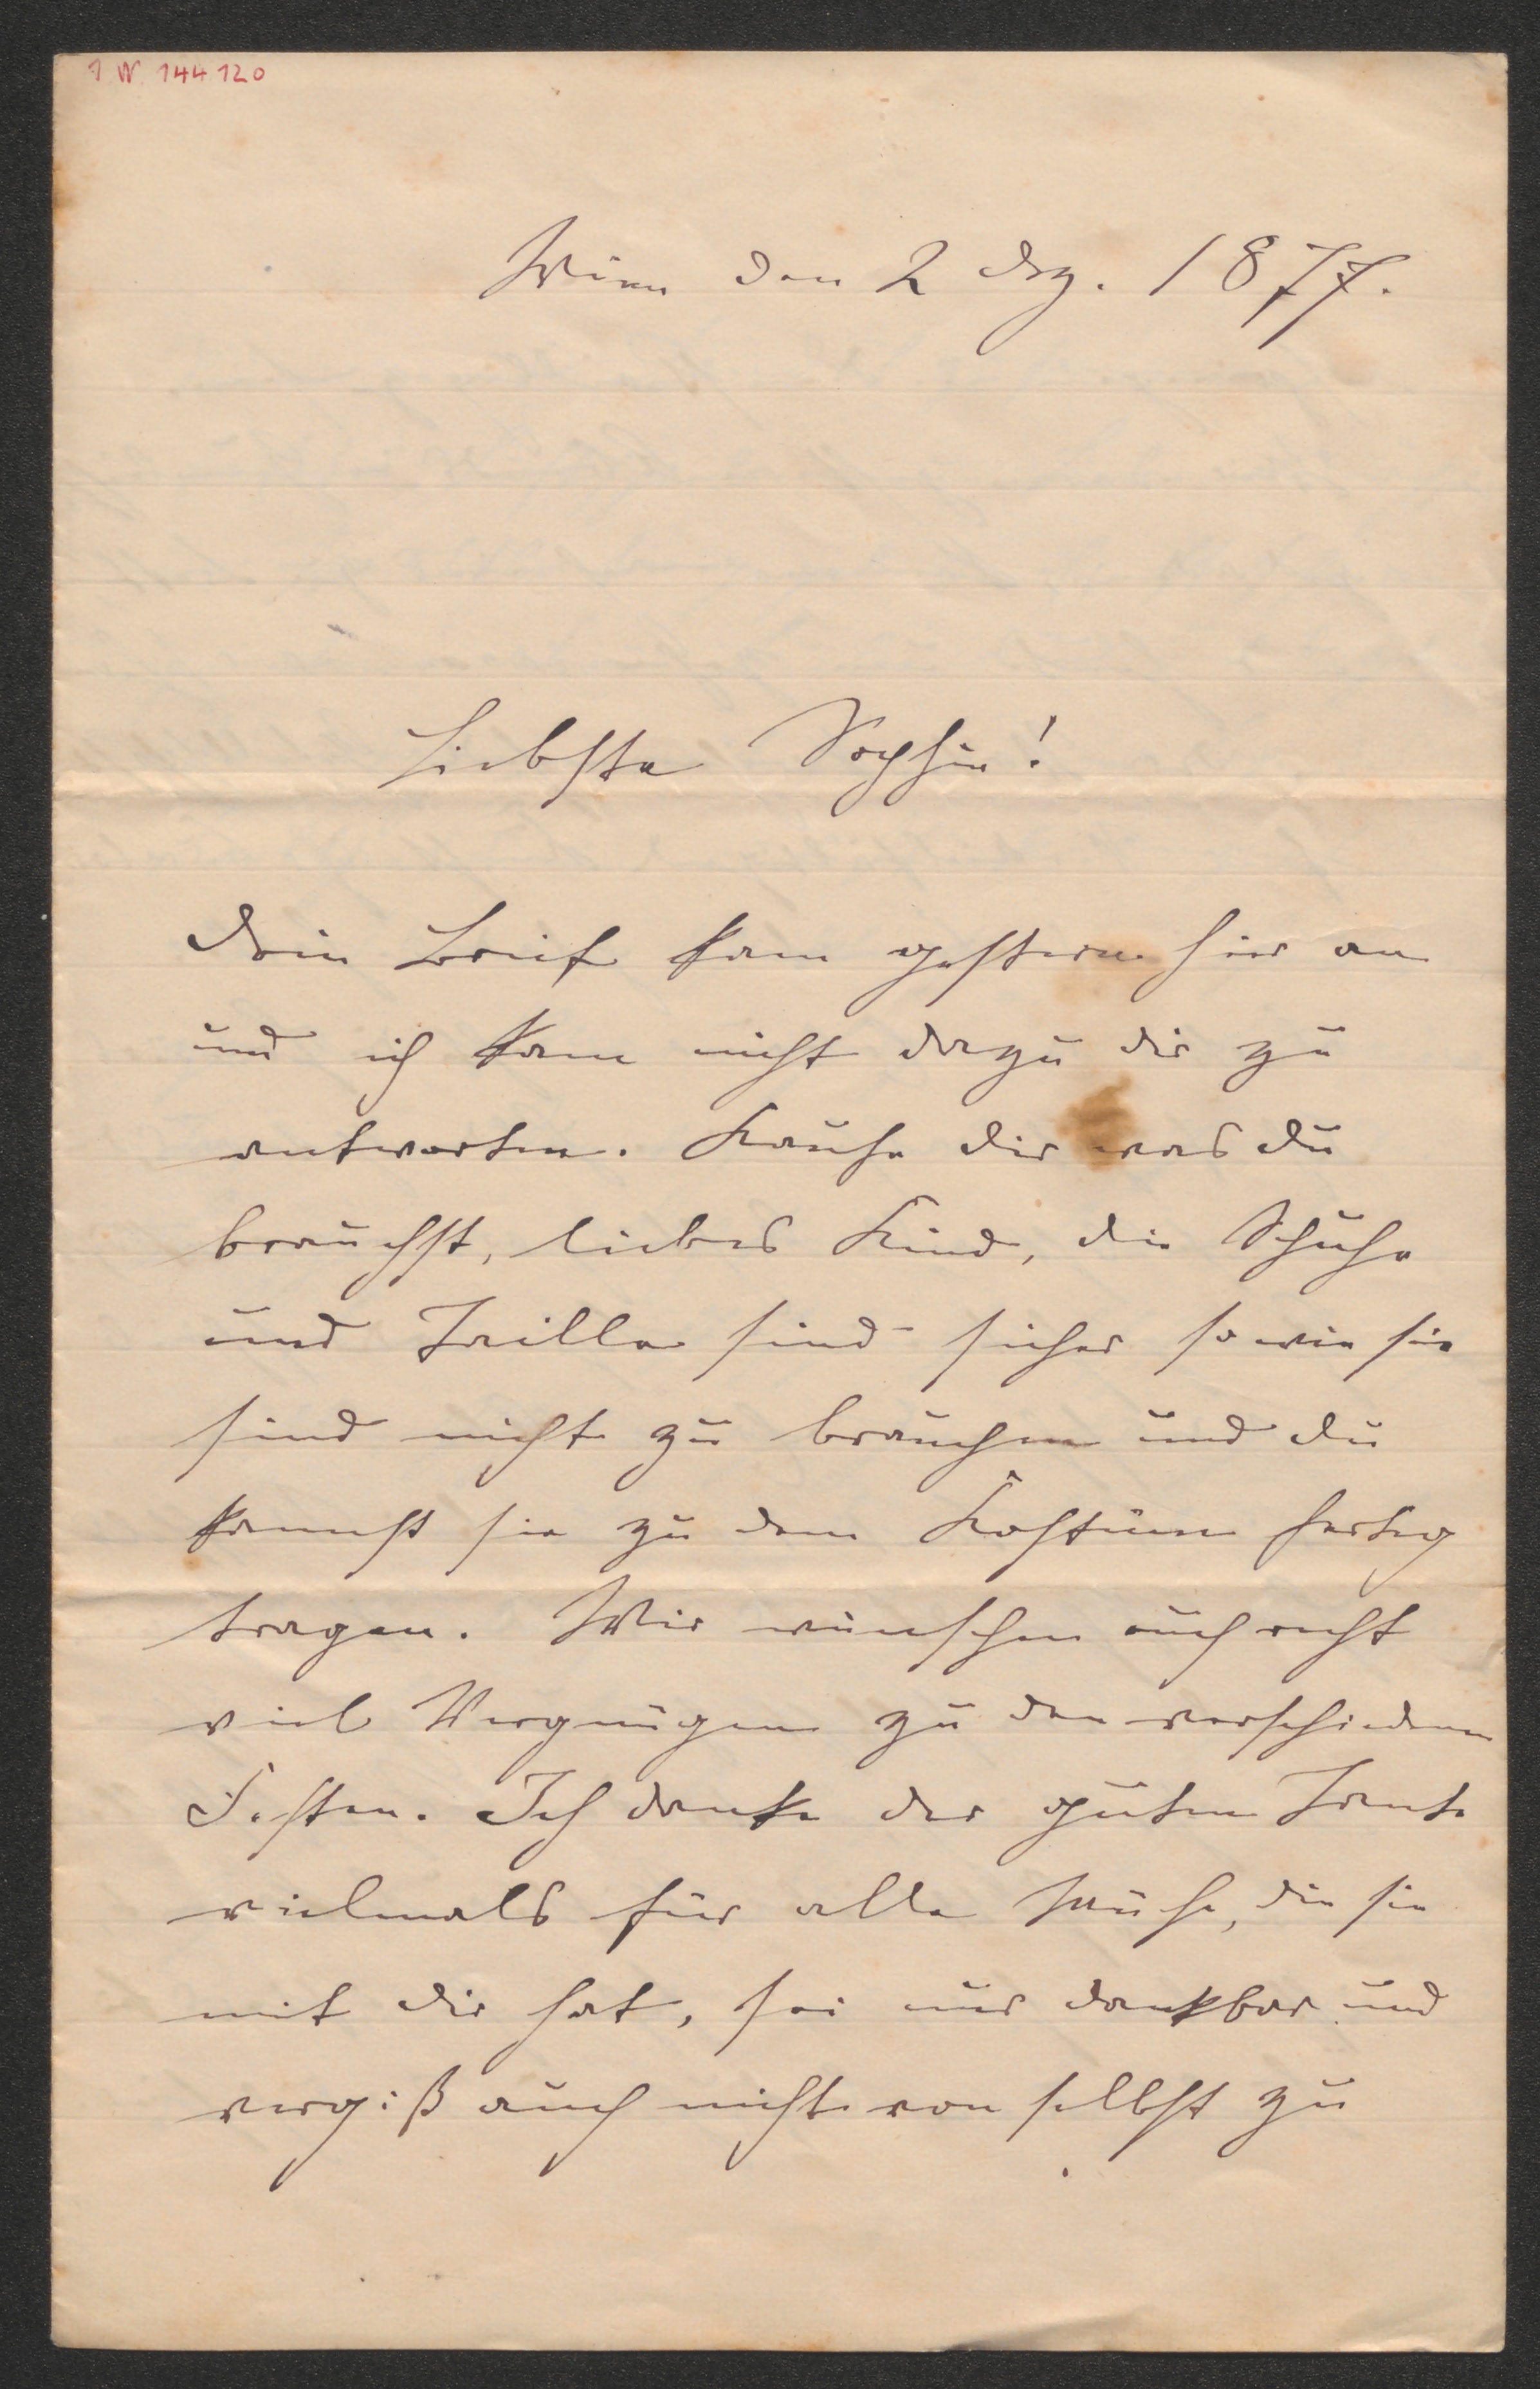 1 N 144 120
Wien den 2 Dez. 1877.
Liebste Sophie!
Dein Brief kam gestern hier an
und ich kam nicht dazu dir zu
antworten. Kaufe dir was du
brauchst, liebes Kind, die Schuhe
und Taille sind sicher so wie sie
sind nicht zu brauchen und du
kannst sie zu dem Kostüm fertig
tragen. Wir wünschen euch recht
viel Vergnügen zu den verschiedenen
Festen. Ich danke der guten Tante
vielmals für alle Mühe, die sie
mit dir hat, sei nur dankbar und
vergiß auch nicht von selbst zu